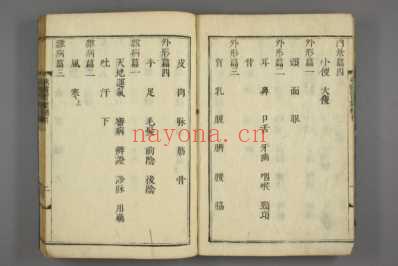 內景篇四
小便 大便
外形篇一
頭 面 眼
外形篇二
耳 鼻 口舌 牙齒 咽喉 頸項
背
外形篇三
胷 乳 腹 臍 腰 脇
外形篇四
皮 肉 脉 筋 骨
手 足 毛髮 前陰 後陰
雜病篇一
天地運氣 審病 辨證 診脉 用藥
吐 汗 下
雜病篇二
風 寒上
雜病篇三
nayona.cn